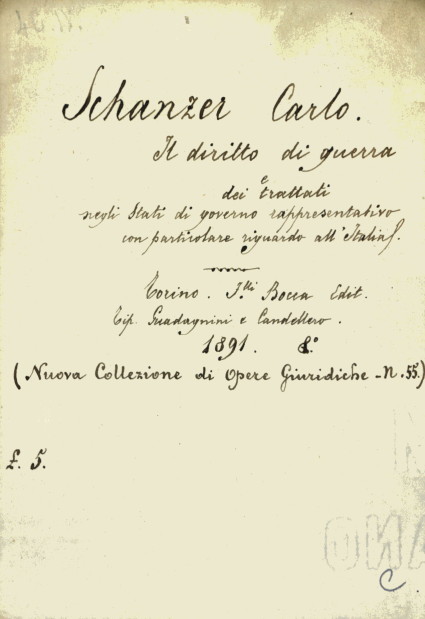 Schanzer Carlo.
Il diritto di guerra
e
dei trattati
negli Stati di governo rappresentativo
con particolare riguardo all'Italia.
Torino. F.lli Bocca Edit.
Tip. Guadagnini e Candellero.
1891. 8.°
(Nuova Collezione di Opere Giuridiche - N. 55.)
£. 5.
C